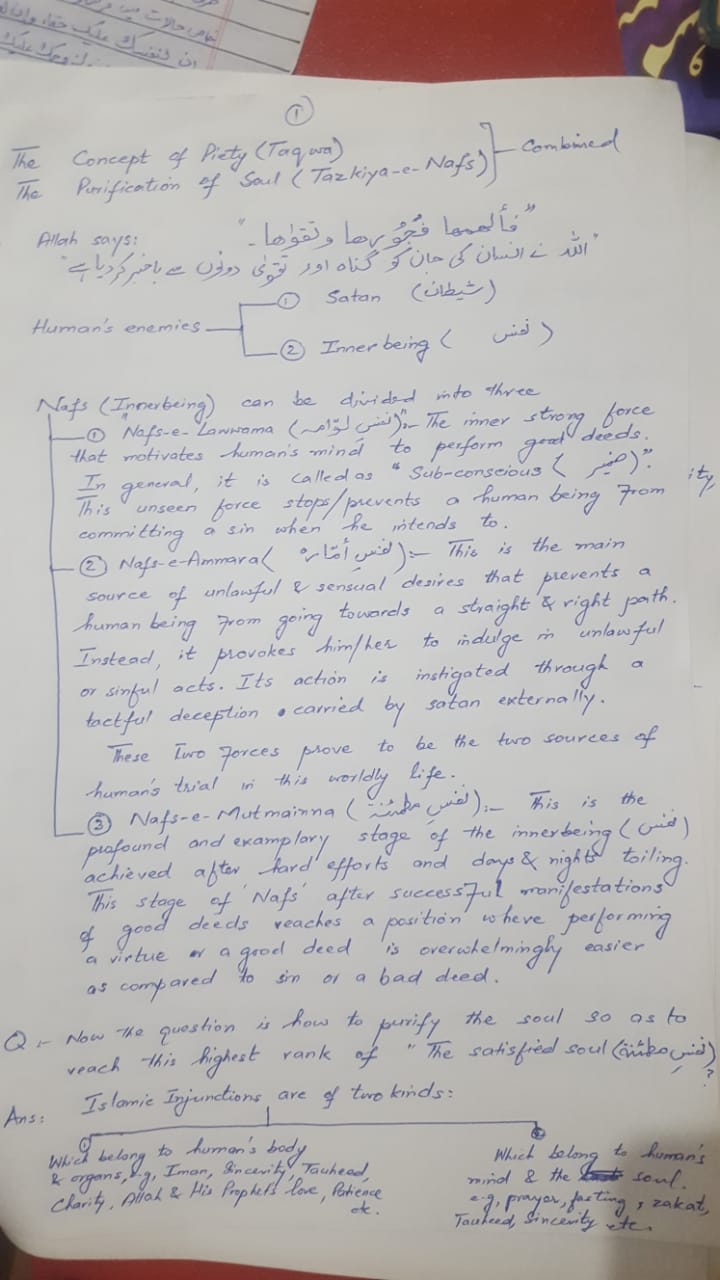 خاص حالات میں
ان لنفسك عليك حقا، وان
لزوجك عليك
①
The Concept of Piety (Taqwa)
The Purification of Soul (Tazkiya-e-Nafs)
Combined
Allah says: "فألهمها فجورها وتقواها۔"
"اللہ نے انسان کی جان کو گناہ اور تقوٰی دونوں سے باخبر کر دیا ہے"
Human's enemies
① Satan (شیطان)
② Inner being (نفس)
Nafs (Innerbeing) can be divided into three
① "Nafs-e-Lawwama (نفسِ لوّامہ)":- The inner strong force
that motivates human's mind to perform good deeds.
In general, it is called as "Sub-conscious (ضمیر)".
This unseen force stops/prevents a human being from
committing a sin when he intends to.
ity,
② Nafs-e-Ammara (نفسِ أمّارہ):- This is the main
source of unlawful & sensual desires that prevents a
human being from going towards a straight & right path.
Instead, it provokes him/her to indulge in unlawful
or sinful acts. Its action is instigated through a
tactful deception carried by satan externally.
These Two forces prove to be the two sources of
human's trial in this worldly life.
③ Nafs-e-Mutmainna (نفسِ مطمئنة):- This is the
profound and examplary stage of the innerbeing (نفس)
achieved after hard efforts and days & nights toiling.
This stage of 'Nafs' after successful manifestations
of good deeds reaches a position where performing
a virtue or a good deed is overwhelmingly easier
as compared to sin or a bad deed.
Q:- Now the question is how to purify the soul so as to
reach this highest rank of "The satisfied soul (نفسِ مطمئنة)
?
Ans: Islamic Injunctions are of two kinds:
①
Which belong to human's body
& organs, e.g, Iman, Sincerity, Tauheed,
Charity, Allah & His Prophet's love, Patience
etc.
②
Which belong to human's
mind & the soul.
e.g, prayer, fasting, zakat,
Tauheed, Sincerity etc.